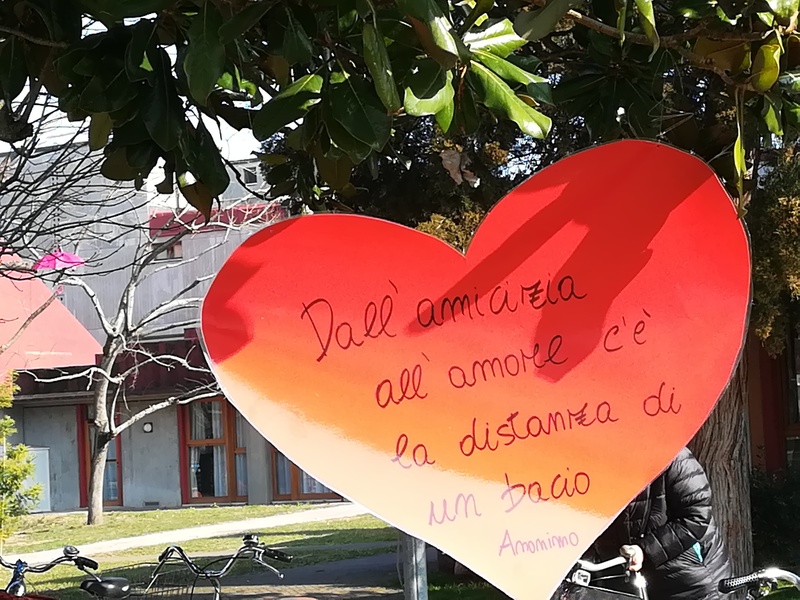 Dall'amicizia
all'amore c'è
la distanza di
un bacio
Anonimo